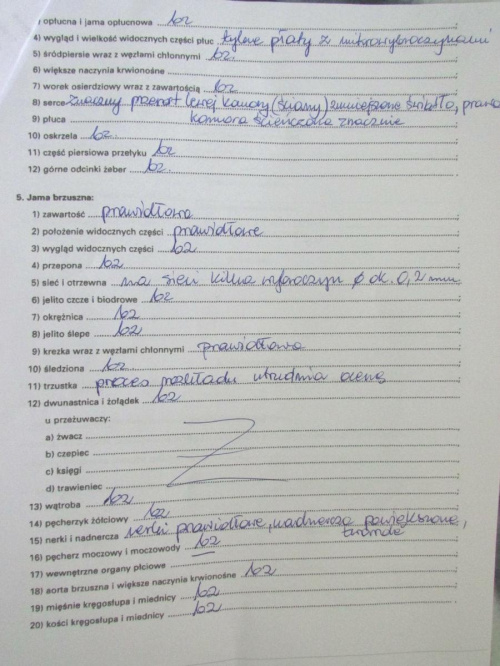 ) opłucna i jama opłucnowa bz ;
4) wygląd i wielkość widocznych części płuc tylne płaty z mikrowybroczynami
5) śródpiersie wraz z węzłami chłonnymi bz. ;
6) większe naczynia krwionośne ;
7) worek osierdziowy wraz z zawartością bz. ;
8) serce znaczny przerost lewej komory (ściany) zmniejszone światło, prawa
9) płuca komora ścieńczona znacznie
10) oskrzela bz. ;
11) część piersiowa przełyku bz ;
12) górne odcinki żeber bz. ;
5. Jama brzuszna:
1) zawartość prawidłowa ;
2) położenie widocznych części prawidłowe ;
3) wygląd widocznych części bz ;
4) przepona bz ;
5) sieć i otrzewna na sieci kilka wybroczyn φ ok. 0,2 mm
6) jelito czcze i biodrowe bz ;
7) okrężnica bz ;
8) jelito ślepe bz ;
9) krezka wraz z węzłami chłonnymi prawidłowa ;
10) śledziona bz ;
11) trzustka proces rozkładu utrudnia ocenę ;
12) dwunastnica i żołądek bz ;
u przeżuwaczy:
a) żwacz ;
b) czepiec ;
c) księgi ;
d) trawieniec ;
13) wątroba bz ;
14) pęcherzyk żółciowy bz ;
15) nerki i nadnercza nerki prawidłowe, nadnercza powiększone,
twarde
16) pęcherz moczowy i moczowody bz ;
17) wewnętrzne organy płciowe ;
18) aorta brzuszna i większe naczynia krwionośne bz ;
19) mięśnie kręgosłupa i miednicy bz ;
20) kości kręgosłupa i miednicy bz ;